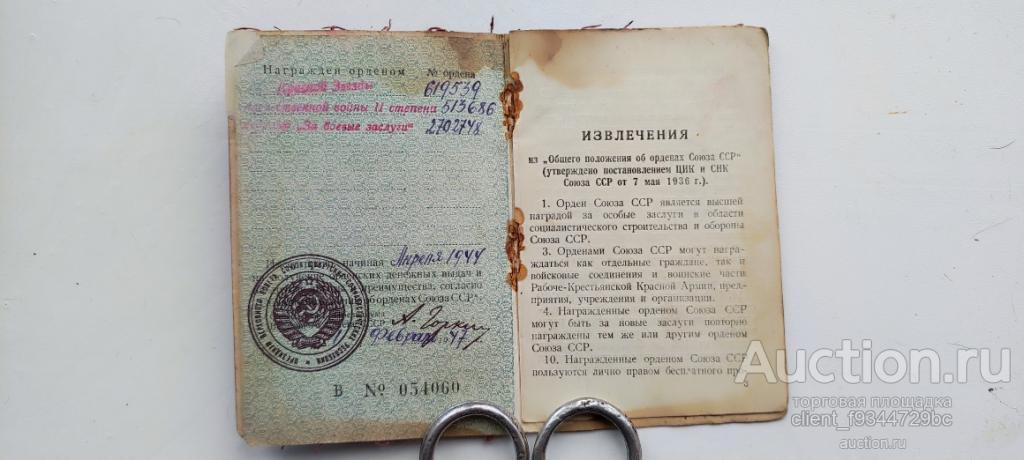 Награжден орденом № ордена
Красной Звезды 619539
ственной войны II степени 513686
„За боевые заслуги" 2702748
начиная Апреля 1944
денежных выдач и
преимущества, согласно
орденах Союза ССР".
А. Горкин
Февраля 1947
В № 054060
ИЗВЛЕЧЕНИЯ
из „Общего положения об орденах Союза ССР"
(утверждено постановлением ЦИК и СНК
Союза ССР от 7 мая 1936 г.).
1. Орден Союза ССР является высшей
наградой за особые заслуги в области
социалистического строительства и обороны
Союза ССР.
3. Орденами Союза ССР могут награ-
ждаться как отдельные граждане, так и
войсковые соединения и воинские части
Рабоче-Крестьянской Красной Армии, пред-
приятия, учреждения и организации.
4. Награжденные орденом Союза ССР
могут быть за новые заслуги повторно
награждены тем же или другим орденом
Союза ССР.
10. Награжденные орденом Союза ССР
пользуются лично правом бесплатного про-
3
Auction.ru
торговая площадка
client_f9344729bc
auction.ru